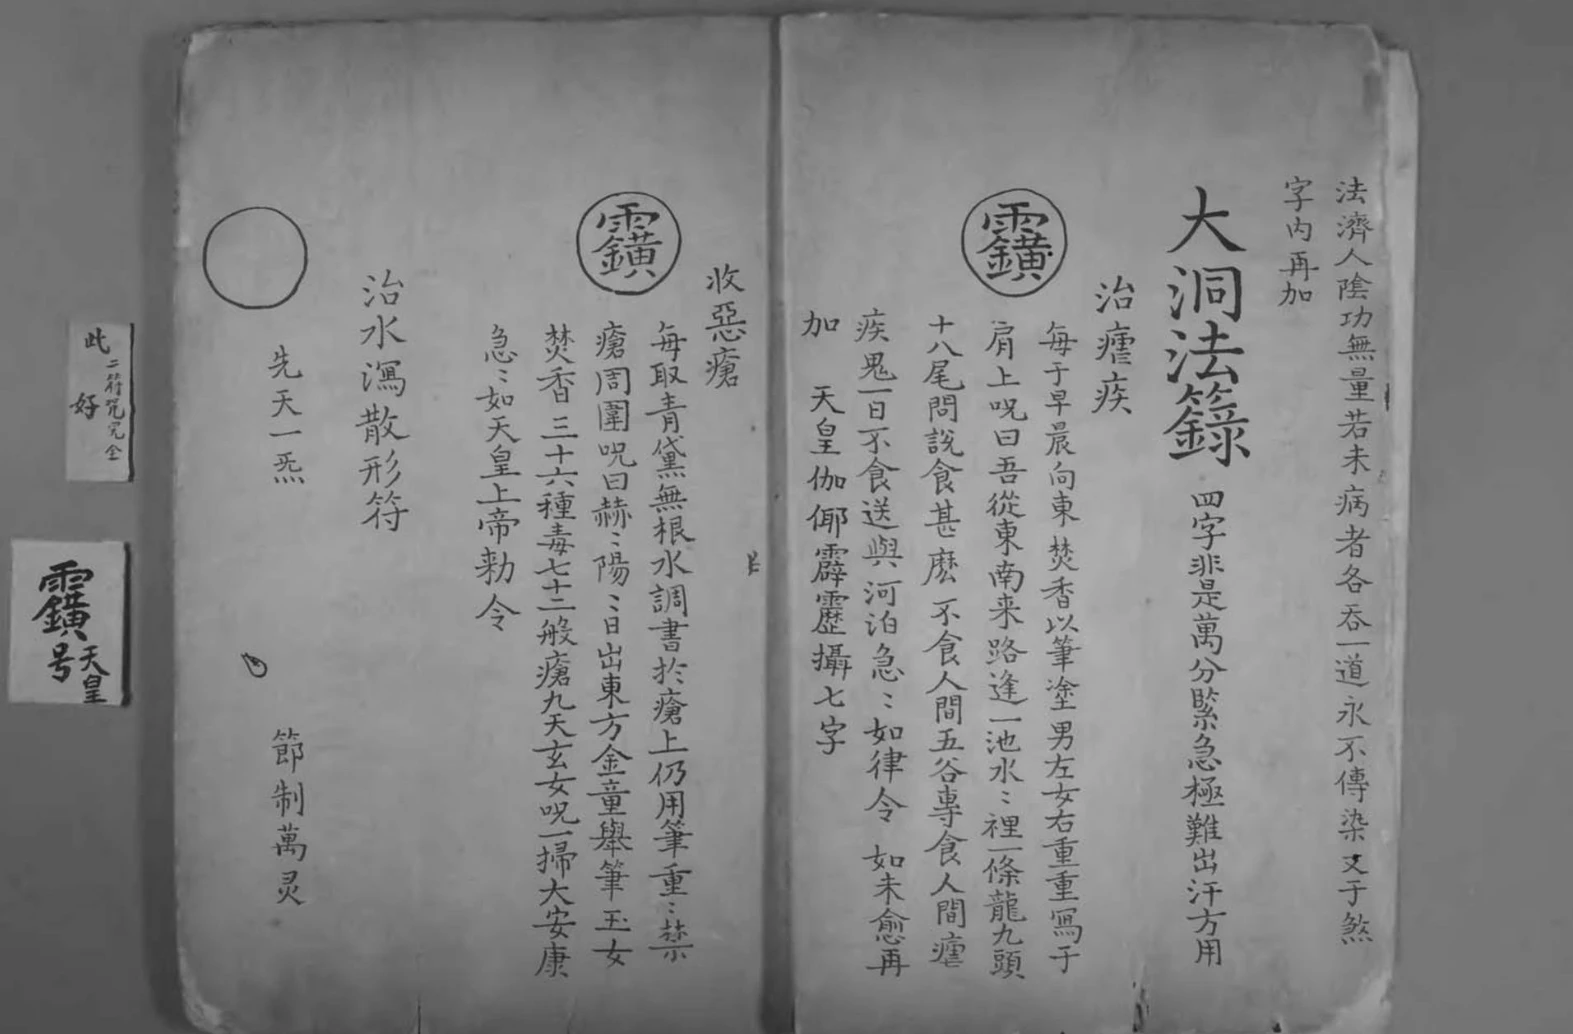 法濟人陰功無量若未病者各吞一道永不傳染又于煞
字內再加
大洞法籙 四字非是萬分緊急極難出汗方用
治瘧疾
每于早晨向東焚香以筆塗男左女右重重寫于
肩上呪曰吾從東南来路逢一池水〻裡一條龍九頭
十八尾問說食甚麽不食人間五谷專食人間瘧
疾鬼一日不食送與河泊急〻如律令 如未愈再
加 天皇伽倻霹靂攝七字
收惡瘡
每取青黛無根水調書於瘡上仍用筆重〻禁
瘡周圍呪曰赫〻陽〻日出東方金童舉筆玉女
焚香三十六種毒七十二般瘡九天玄女呪一掃大安康
急〻如天皇上帝勑令
治水瀉散形符
先天一炁 節制萬灵
此二符咒完全
好
天皇
号